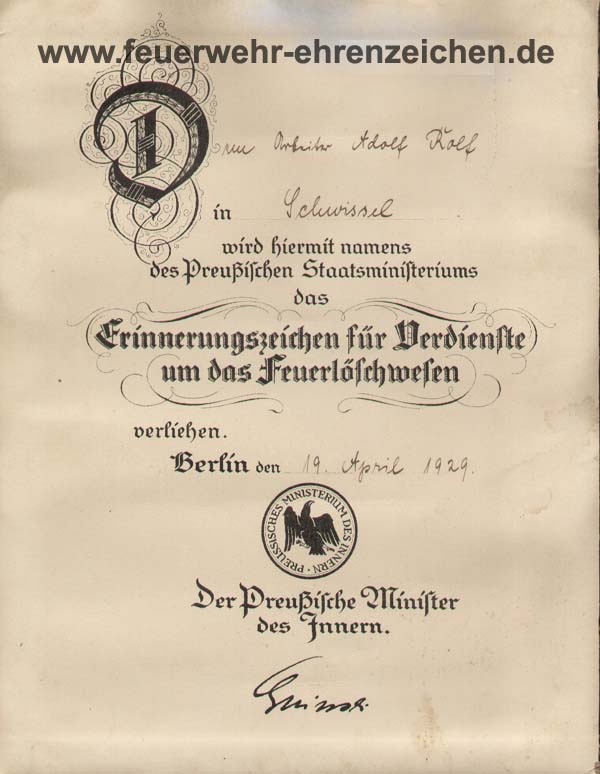 www.feuerwehr-ehrenzeichen.de
Dem Arbeiter Adolf Rolf
in Schwissel
wird hiermit namens
des Preußischen Staatsministeriums
das
Erinnerungszeichen für Verdienste
um das Feuerlöschwesen
verliehen.
Berlin den 19. April 1929.
PREUSSISCHES MINISTERIUM DES INNERN
Der Preußische Minister
des Innern.